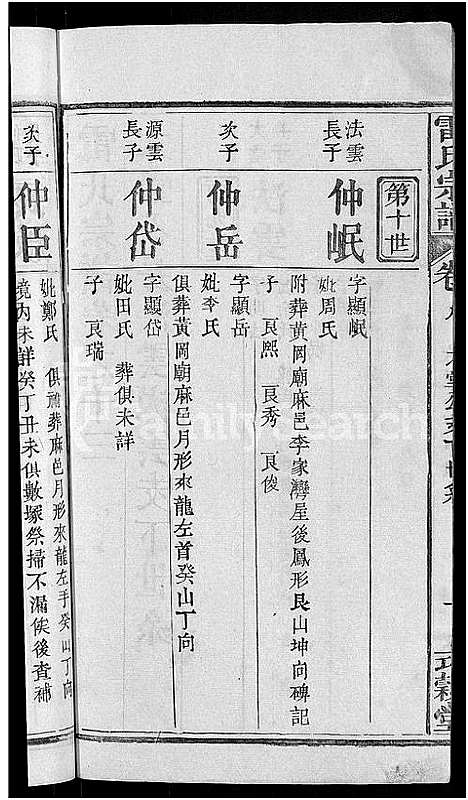 雷氏宗譜
卷
第十世
法雲
長子
仲岷
字顯岷
妣周氏
附葬黃岡廟麻邑李家灣屋後鳳形艮山坤向碑記
子 良熙 良秀 良俊
次子
仲岳
字顯岳
妣李氏
俱葬黃岡廟麻邑月形來龍左首癸山丁向
源雲
長子
仲岱
字顯岱
妣田氏 葬俱未詳
子 良瑞
次子
仲臣
妣鄭氏 俱祔葬麻邑月形來龍左手癸山丁向
境內未詳癸丁丑未俱數塚祭掃不漏俟後查補
familysearch